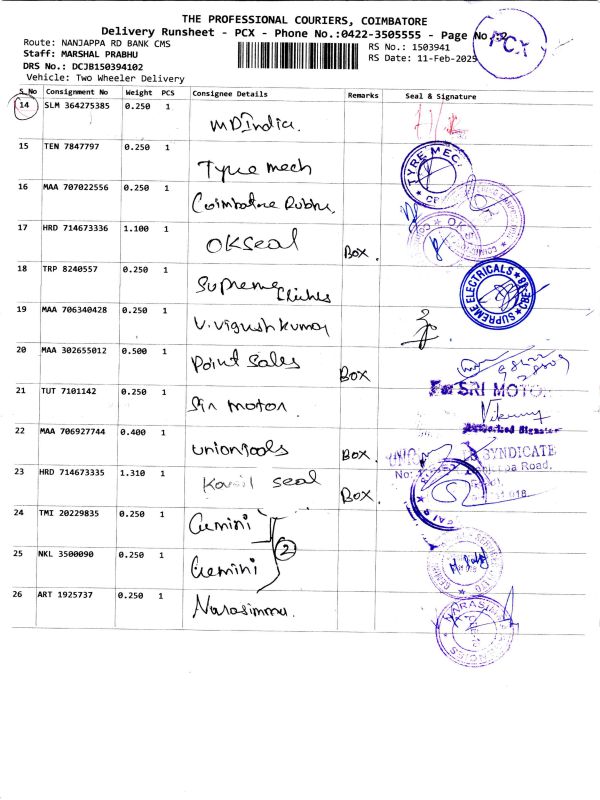 THE PROFESSIONAL COURIERS, COIMBATORE
Delivery Runsheet - PCX - Phone No.:0422-3505555 - Page No.
PCX
Route: NANJAPPA RD BANK CMS
RS No.: 1503941
Staff: MARSHAL PRABHU
RS Date: 11-Feb-2025
DRS No.: DCJB150394102
Vehicle: Two Wheeler Delivery
S_No Consignment No Weight PCS Consignee Details Remarks Seal & Signature
14 SLM 364275385 0.250 1 MD India
15 TEN 7847797 0.250 1 Tyre mech TYRE MEC
16 MAA 707022556 0.250 1 Coimbatore Rubbe
17 HRD 714673336 1.100 1 OKSeal Box. OKS
18 TRP 8240557 0.250 1 Supreme SUPREME ELECTRICALS CBE-18
19 MAA 706340428 0.250 1 V. Vignesh kumar
20 MAA 302655012 0.500 1 Point Sales Box
21 TUT 7101142 0.250 1 Sri motor. For SRI MOTOR
22 MAA 706927744 0.400 1 uniontools Box. SYNDICATE
Road,
23 HRD 714673335 1.310 1 seal Box. 018.
24 TMI 20229835 0.250 1 Gemini
2
25 NKL 3500090 0.250 1 Gemini
26 ART 1925737 0.250 1 Narasimma. NARASIM